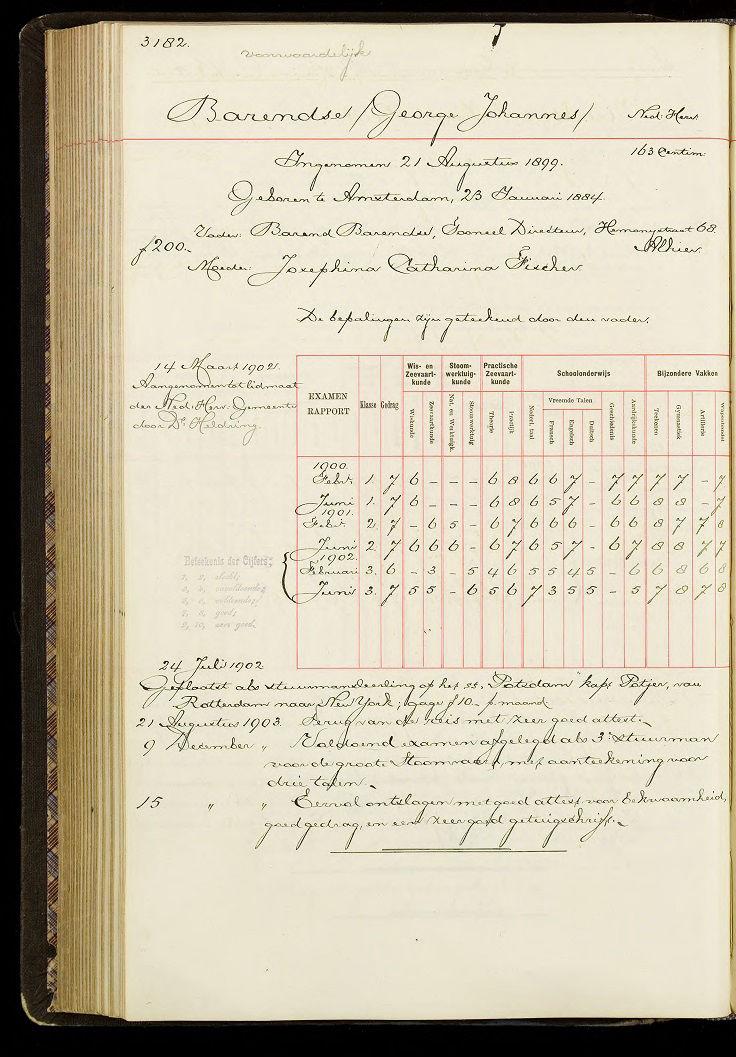 3182.
7
voorwaardelijk
Barendse /George Johannes/
Ned: Herv.
Ingenomen 21 Augustus 1899.
163 Centim.
Geboren te Amsterdam, 23 Januari 1884.
Vader: Barend Barendse, Tooneel Directeur, Hemonystraat 68.
Alhier.
f200.-
Moeder: Josephina Catharina Fischer
De bepalingen zijn geteekend door den vader.
14 Maart 1902.
Aangenomen tot lidmaat
der Ned: Herv: Gemeente
door Ds Heldring.
EXAMEN RAPPORT Klasse Gedrag Wis- en Zeevaartkunde Stoomwerktuigkunde Practische Zeevaartkunde Schoolonderwijs Bijzondere Vakken
Vreemde Talen
Wiskunde Zeevaartkunde Nat. en Werktuigk. Stoomwerktuig Theorie Practijk Nederl. taal Fransch Engelsch Duitsch Geschiedenis Aardrijkskunde Teekenen Gymnastiek Artillerie Wapenhandel
1900.
Febr. 1. 7 6 - - - 6 8 6 6 7 - 7 7 7 7 - 7
Juni 1. 7 6 - - - 6 8 6 5 7 - 6 6 8 8 - 7
1901.
Febr. 2 7 - 6 5 - 6 7 6 6 6 - 6 6 8 7 7 8
Juni 2 7 6 6 6 - 6 7 6 5 7 - 6 7 8 8 7 7
1902.
Februari 3. 6 - 3 - 5 4 6 5 5 4 5 - 6 6 8 6 8
Juni 3. 7 5 5 - 6 5 6 7 3 5 5 - 5 7 8 7 8
Beteekenis der Cijfers:
1, 2, slecht;
3, 4, onvoldoende;
5, 6, voldoende;
7, 8, goed;
9, 10, zeer goed.
24 Juli 1902
Geplaatst als stuurmansleerling op het ss. "Potsdam" kapt Potjer, van
Rotterdam naar New York; gage f10.- p. maand.
21 Augustus 1903. Terug van de reis met zeer goed attest.
9 December " Voldoend examen afgelegd als 3e stuurman
voor de groote Stoomvaart, met aanteekening voor
drie talen.
15 " " Eervol ontslagen met goed attest voor Bekwaamheid,
goed gedrag, en een zeer goed getuigschrift.